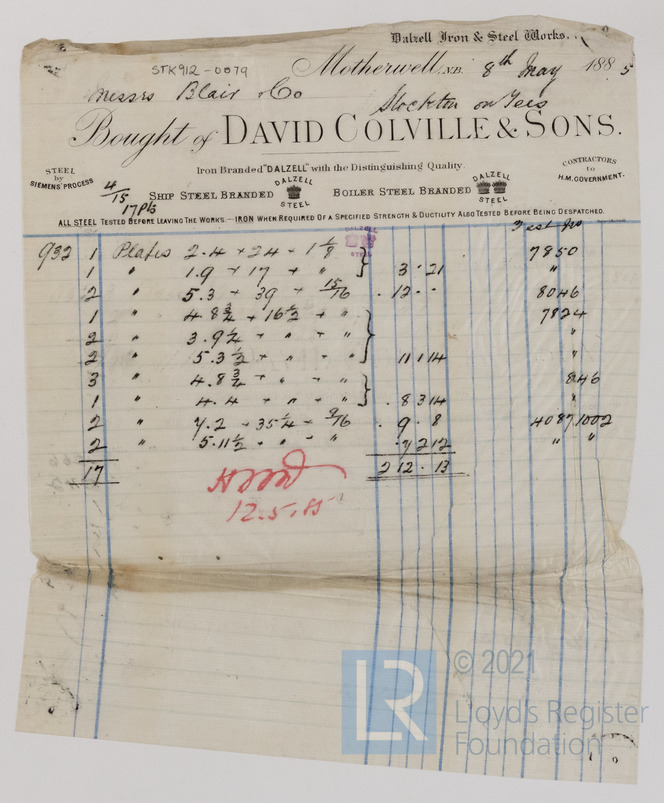 Dalzell Iron & Steel Works.
STK912-0079
Motherwell, N.B. 8th May 1885
Messrs Blair & Co
Stockton on Tees
Bought of DAVID COLVILLE & SONS.
Iron Branded "DALZELL" with the Distinguishing Quality.
STEEL by SIEMENS' PROCESS
CONTRACTORS to H.M. GOVERNMENT.
4/15
17 Pls
SHIP STEEL BRANDED DALZELL STEEL BOILER STEEL BRANDED DALZELL STEEL
ALL STEEL TESTED BEFORE LEAVING THE WORKS.—IRON WHEN REQUIRED OF A SPECIFIED STRENGTH & DUCTILITY ALSO TESTED BEFORE BEING DESPATCHED.
Test No
DALZELL STEEL
932 1 Plates 2.4 + 24 - 1 1/8 7850
1 " 1.9 + 17 + " 3 . 21 "
2 " 5.3 + 39 + 15/16 . 12 . . 8046
1 " 4.8 3/4 + 16 1/2 + " 7824
2 " 3.9 1/2 + " + " "
2 " 5.3 1/2 + " + " 11 1 14 "
3 " 4.8 3/4 + " + " 846
1 " 4.4 + " + " . 8 3 14 "
2 " 7.2 + 35 1/4 + 9/16 . 9 . 8 4087,1002
2 " 5.11 1/2 + " + " . 7 2 12 " "
17 2 12 . 13
12.5.85
LR © 2021
Lloyd's Register
Foundation